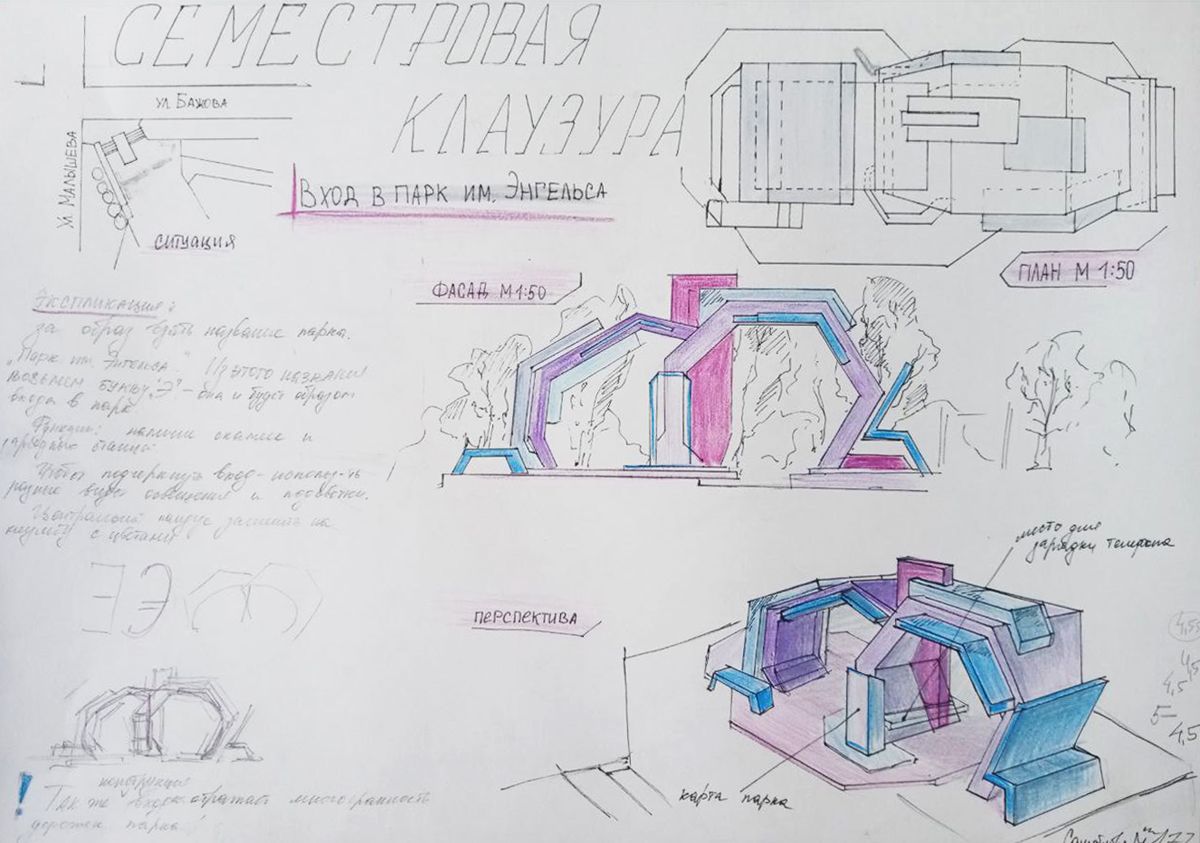 СЕМЕСТРОВАЯ
КЛАУЗУРА
УЛ БАЖОВА
УЛ. МАЛЫШЕВА
СИТУАЦИЯ
ВХОД В ПАРК ИМ. ЭНГЕЛЬСА
ПЛАН М 1:50
ФАСАД М 1:50
Экспликация:
за образ взять название парка.
"Парк им. Энгельса" Из этого названия
возьмем букву "Э" - она и будет образом
входа в парк
Функции: наличие скамеек и
зарядные станции
Чтобы подчеркнуть вход - использ-ть
разные виды освещения и подсветки.
Центральный
клумбу с цветами
ЭЕ
ПЕРСПЕКТИВА
место для
зарядки телефона
карта парка
конструкция
! Так же входа отражает многогранность
дорожек парка!
4,5
4,5
5-
4,5